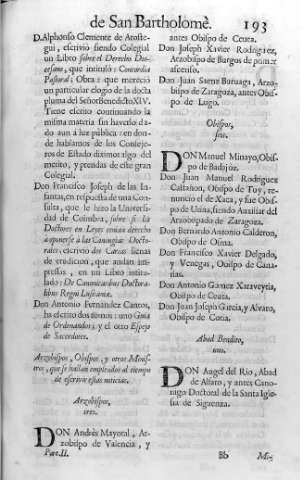 de San Bartholomè. 193
D. Alphonso Clemente de Aroste-
gui, escrivió siendo Colegial
un Libro sobre el Derecho Dio-
cesano, que intituló: Concordia
Pastoral; Obra: que mereció
un particular elogio de la docta
pluma del Señor Benedicto XIV.
Tiene escrito continuando la
misma materia sin haverlo da-
do aun à luz publica: en don-
de hablamos de los Conseje-
ros de Estado diximos algo del
merito, y prendas de este gran
Colegial.
Don Francisco Joseph de las In-
fantas, en respuesta de una Con-
sulta, que le hizo la Universi-
dad de Coimbra, sobre si los
Doctores en Leyes tenian derecho
à oponerse à las Canongias Docto-
rales, escrivió dos Cartas llenas
de erudicion, que andan im-
pressas, en un Libro intitu-
lado: De Canonicatibus Doctora-
libus Regni Lusitaniæ.
Don Antonio Fernandez Cantos,
ha escrito dos tomos: uno Guia
de Ordenandos; y el otro Espejo
de Sacerdotes.
Arzobispos, Obispos, y otros Minis-
tros, que se hallan empleados al tiempo
de escrivir estas noticias.
Arzobispos,
tres.
DON Andrés Mayoral, Ar-
zobispo de Valencia, y
Part. II.
antes Obispo de Ceuta.
Don Joseph Xavier Rodriguez,
Arzobispo de Burgos de primer
ascenso.
Don Juan Saenz Buruaga, Arzo-
bispo de Zaragoza, antes Obis-
po de Lugo.
Obispos,
seis.
DON Manuel Minayo, Obis-
po de Badajòz.
Don Juan Manuel Rodriguez
Castañon, Obispo de Tuy, re-
nunciò el de Xaca, y fue Obis-
po de Utina, siendo Auxiliar del
Arzobispado de Zaragoza.
Don Bernardo Antonio Calderon,
Obispo de Osma.
Don Francisco Xavier Delgado,
y Venegas, Obispo de Cana-
rias.
Don Antonio Gomez Xaraveytia,
Obispo de Ceuta.
Don Juan Joseph Garcia, y Alvaro,
Obispo de Coria.
Abad Bendito,
uno.
DON Angel del Rio, Abad
de Alfaro, y antes Cano-
nigo Doctoral de la Santa Igle-
sia de Siguenza.
Bb Mi-